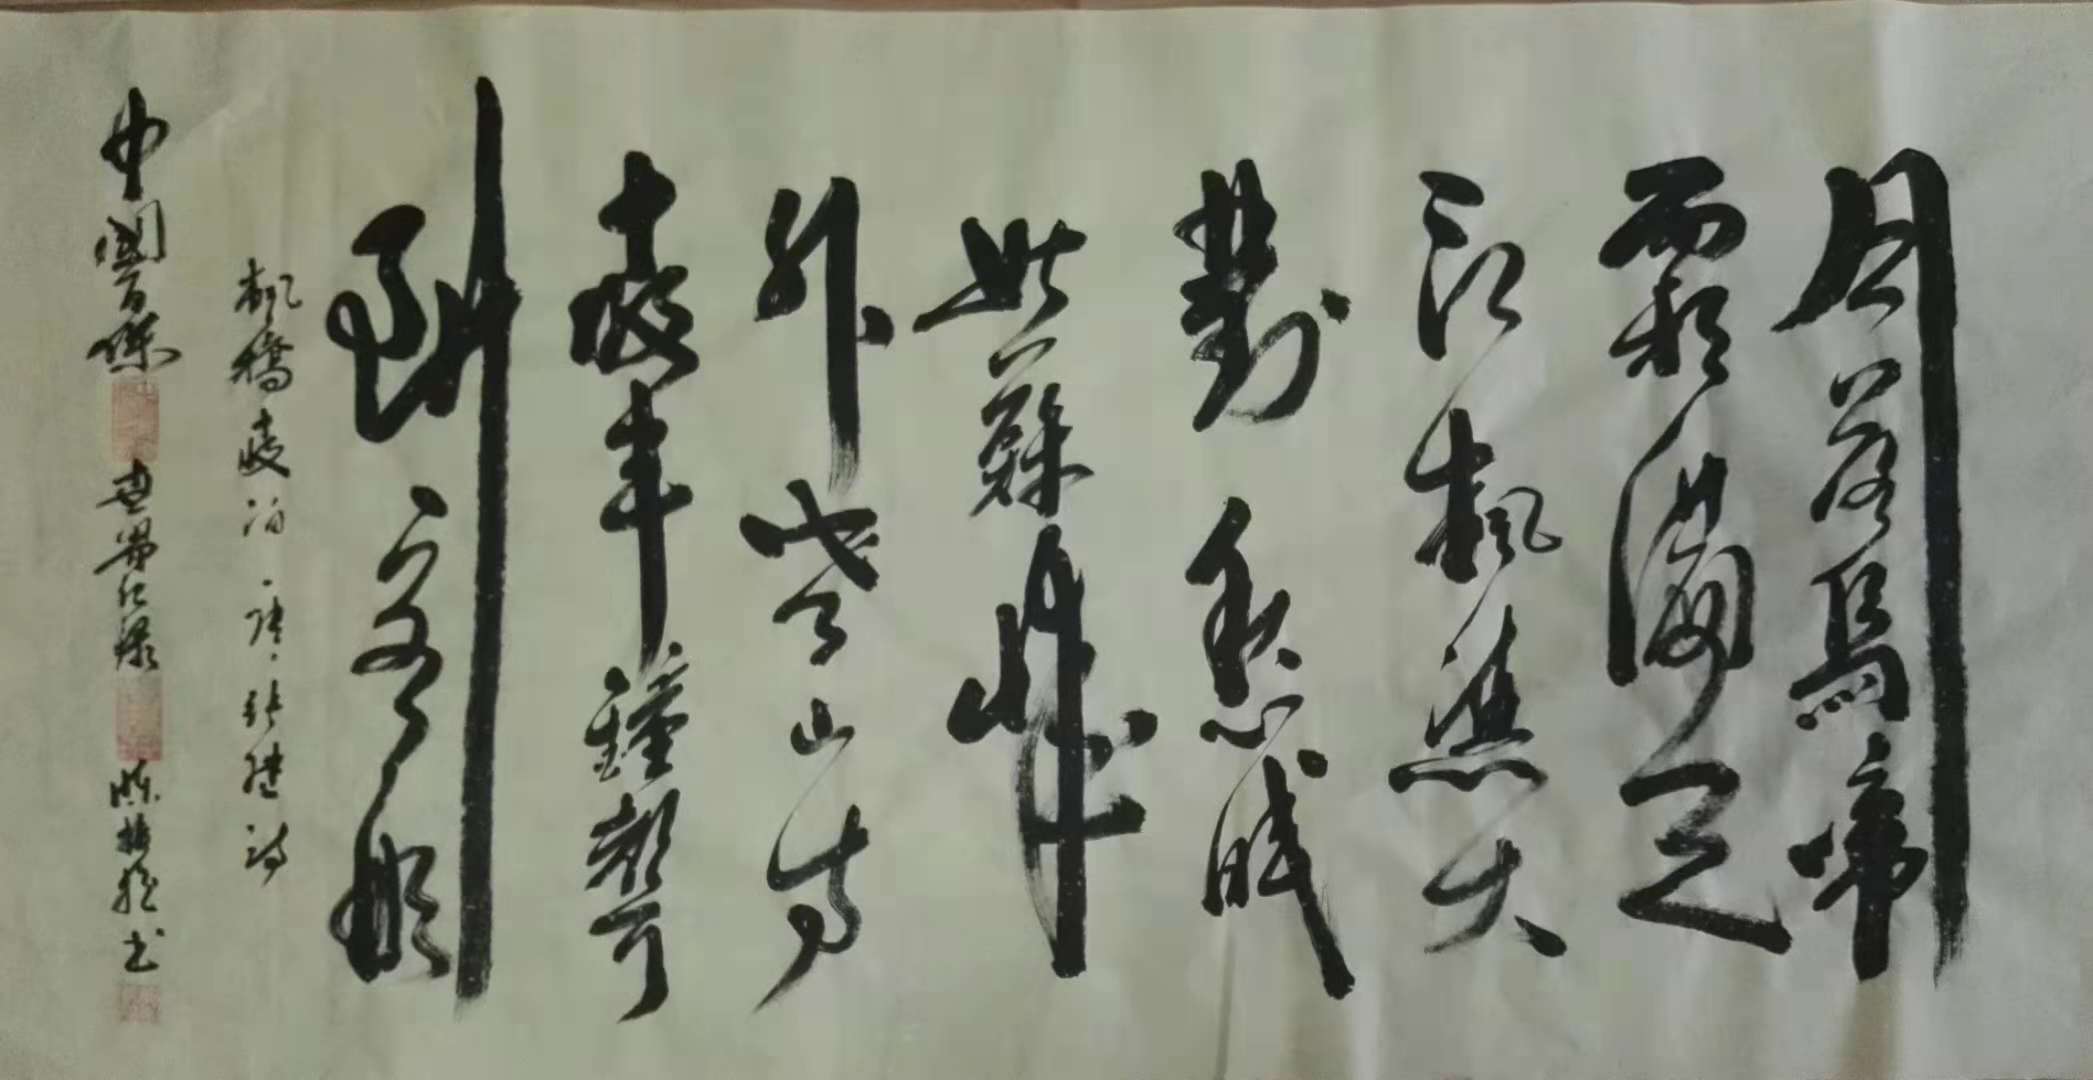 月落烏啼
霜滿天
江楓漁火
對愁眠
姑蘇城
外寒山寺
夜半鐘聲
到客船
楓橋夜泊 唐 張繼 詩
中國
書